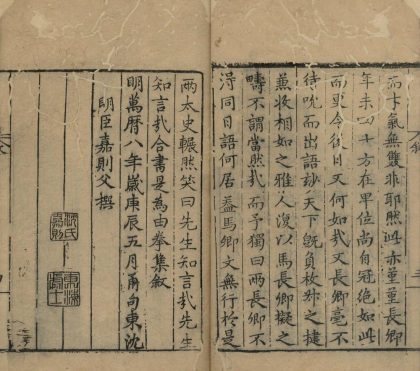 而才氣無雙非耶然此亦童童長卿
年未四十方在卑位尚自冠絕如此
而更令後日又何如哉又長卿毫不
待吮而出語玅天下既負枚叔之捷
兼收相如之雅人復以馬長卿擬之
疇不謂當然哉而予獨曰兩長卿不
淂同日語何居蓋馬卿文無行於是
兩太史囅然笑曰先生知言哉先生
知言哉合書是為由拳集敘
明萬曆八年歲庚辰五月甬句東沈
明臣嘉則父撰
沈氏嘉則